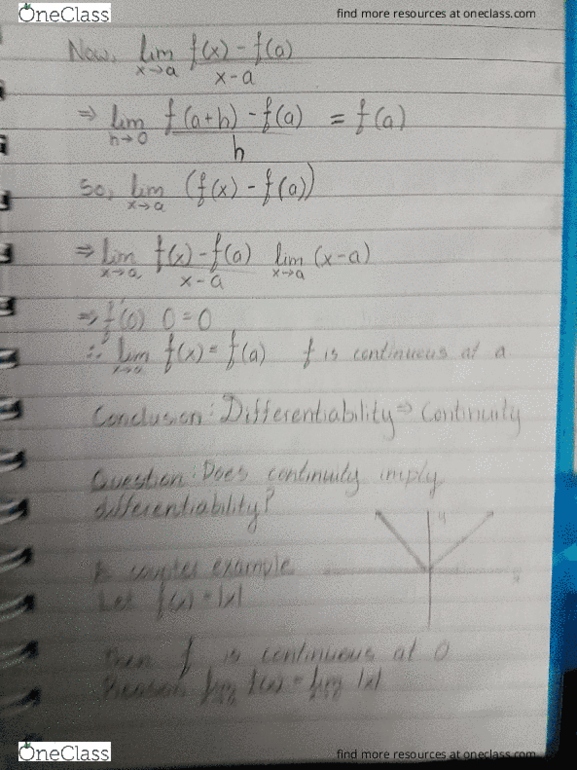 OneClass
find more resources at oneclass.com
Now, lim x→a f(x) - f(a) / x-a
⇒ lim h→0 f(a+h) - f(a) / h = f(a)
So, lim x→a (f(x) - f(a))
⇒ lim x→a f(x) - f(a) / x-a lim x→a (x-a)
⇒ f'(0) 0 = 0
∴ lim x→a f(x) = f(a) f is continuous at a
Conclusion: Differentiability ⇒ Continuity
Question: Does continuity imply
differentiability?
y
A counter example
Let f(x) = |x|
Then f is continuous at 0
Reason lim f(x) = lim |x|
OneClass
find more resources at oneclass.com